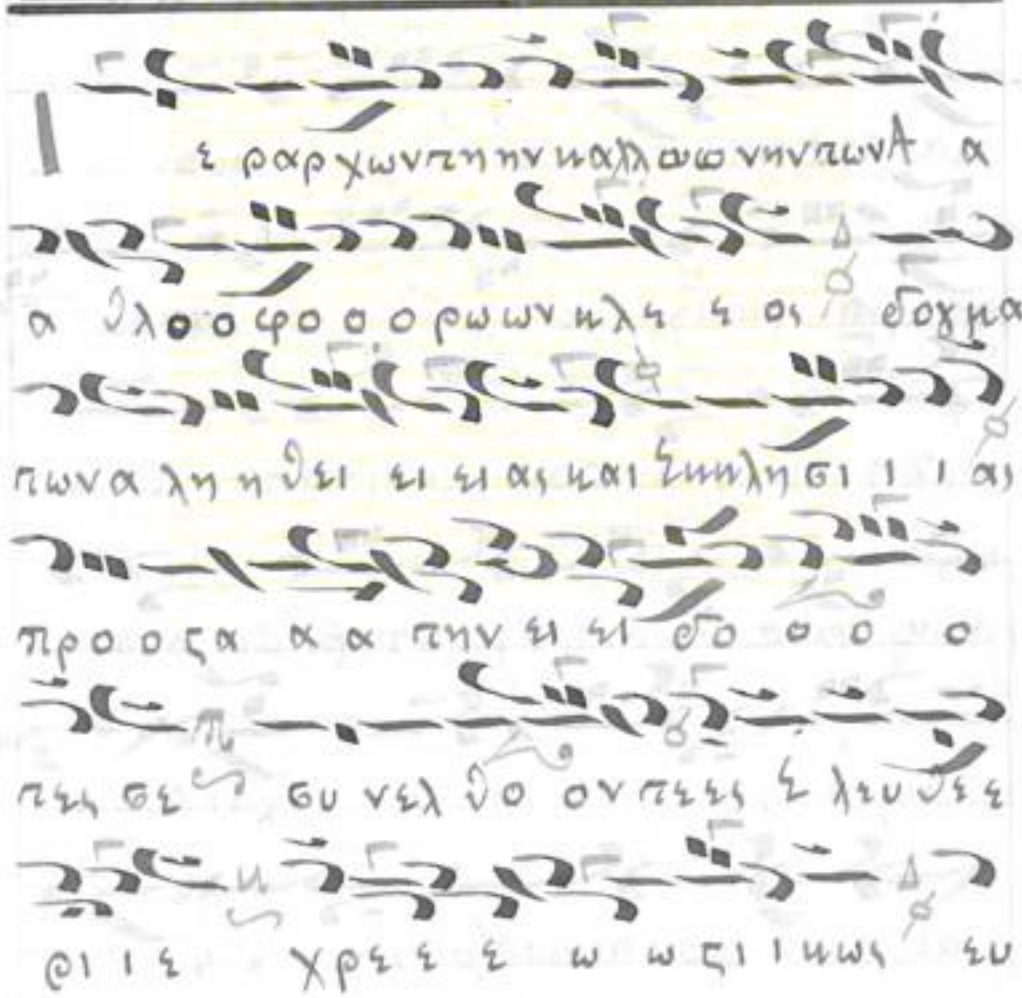 Ι ε ραρχωντηηνκαλλωωνηντωνΑ α
α θλοοφοοορωωνκλε ε ος δογμα
τωναληηθει ει ειαςκαι Εκκλησι ι ι ας
προοστα α α την ει ει δο ο ο ο
τες σε συ νελ θο οντεες Ε λευθεε
ρι ι ε χρεε ε ω ωστι ικως ευ